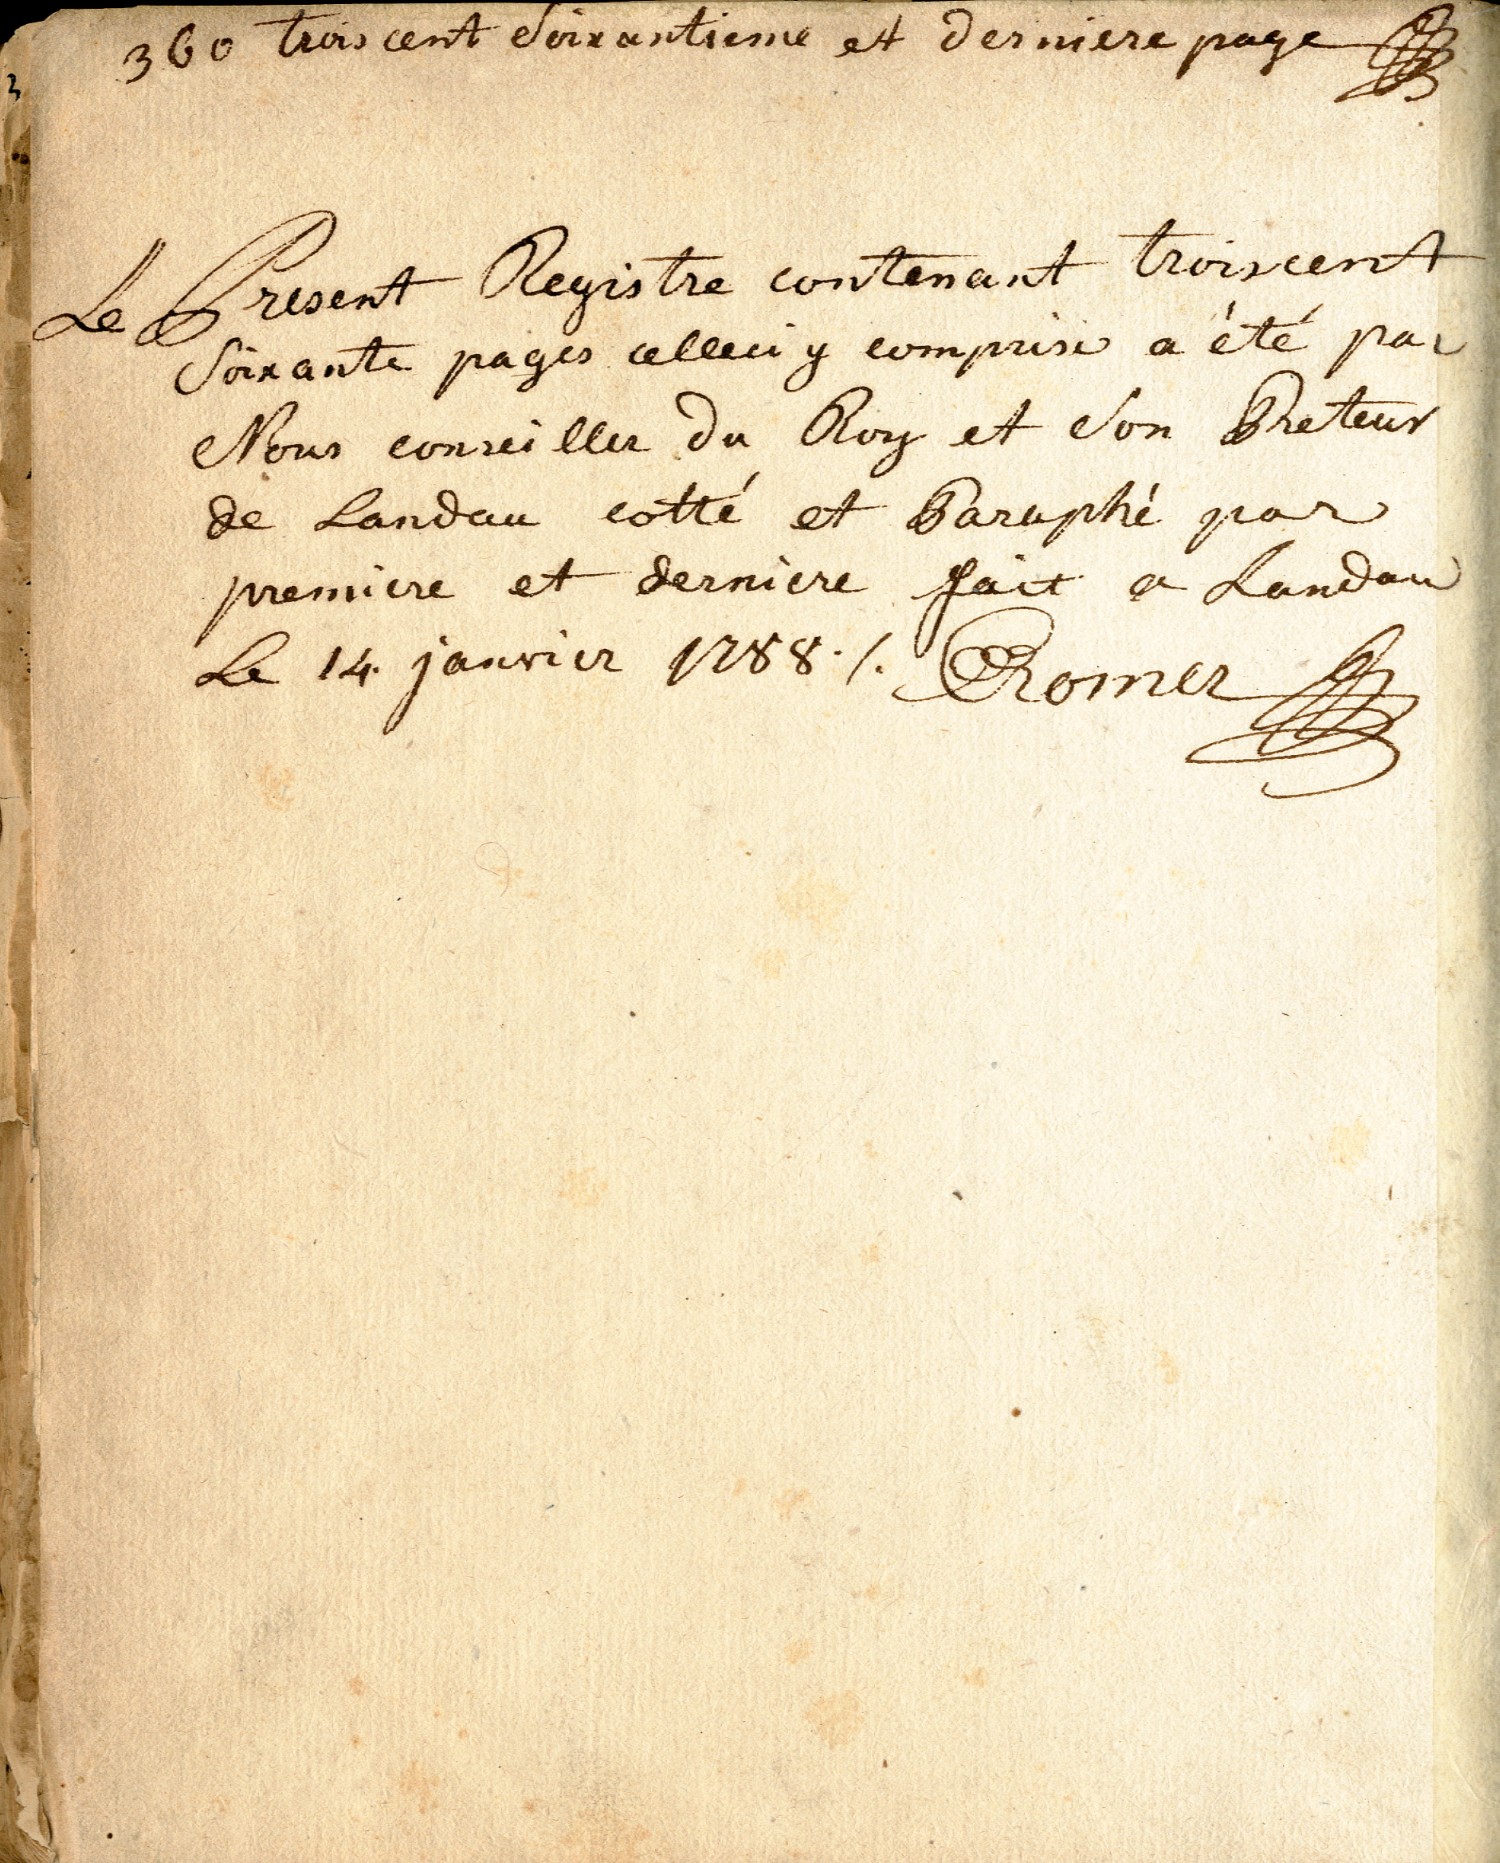 360 trois cent Soixantieme et derniere page
Le Present Registre contenant troiscent
Soixante pages celleci y comprise a été par
Nous conseiller du Roy et Son Preteur
de Landau cotté et Paraphé par
premiere et derniere fait a Landau
Le 14. janvier 1788 ./. Romer